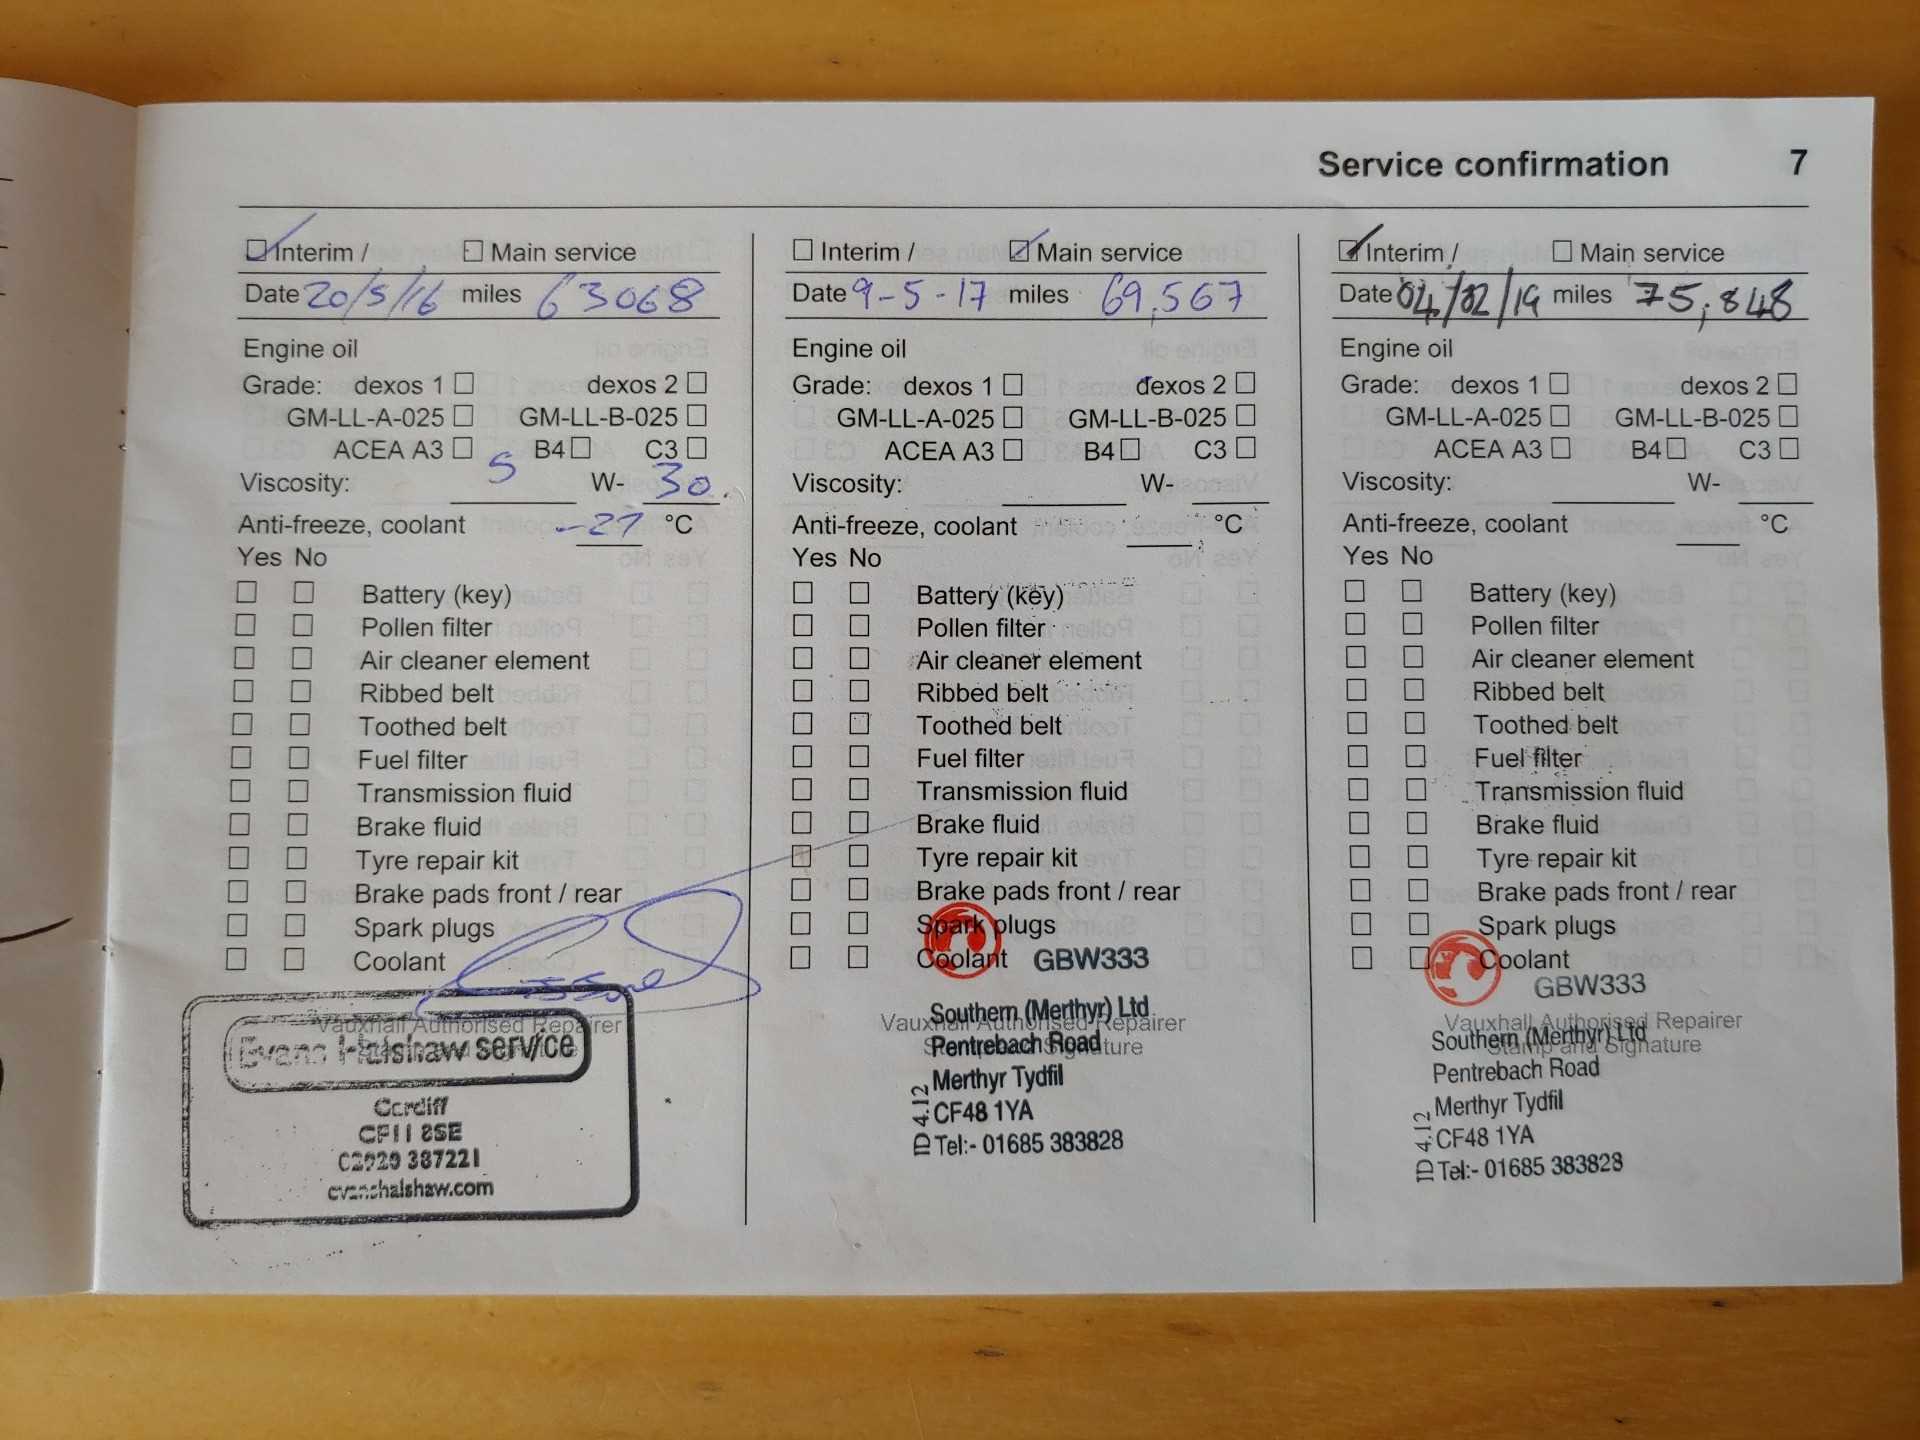 Service confirmation 7
Interim / Main service
Date 20/5/16 miles 63068
Engine oil
Grade: dexos 1 dexos 2
GM-LL-A-025 GM-LL-B-025
ACEA A3 B4 C3
Viscosity: 5 W- 30
Anti-freeze, coolant -27 °C
Yes No
Battery (key)
Pollen filter
Air cleaner element
Ribbed belt
Toothed belt
Fuel filter
Transmission fluid
Brake fluid
Tyre repair kit
Brake pads front / rear
Spark plugs
Coolant
Vauxhall Authorised Repairer
Evans Halshaw service
Cardiff
CF11 8SE
02920 387221
evanshalshaw.com
Interim / Main service
Date 9-5-17 miles 69,567
Engine oil
Grade: dexos 1 dexos 2
GM-LL-A-025 GM-LL-B-025
ACEA A3 B4 C3
Viscosity: W-
Anti-freeze, coolant °C
Yes No
Battery (key)
Pollen filter
Air cleaner element
Ribbed belt
Toothed belt
Fuel filter
Transmission fluid
Brake fluid
Tyre repair kit
Brake pads front / rear
Spark plugs
Coolant GBW333
Southern (Merthyr) Ltd
Vauxhall Authorised Repairer
Pentrebach Road
Stamp and Signature
Merthyr Tydfil
CF48 1YA
Tel:- 01685 383828
ID 4.12
Interim / Main service
Date 04/02/19 miles 75,848
Engine oil
Grade: dexos 1 dexos 2
GM-LL-A-025 GM-LL-B-025
ACEA A3 B4 C3
Viscosity: W-
Anti-freeze, coolant °C
Yes No
Battery (key)
Pollen filter
Air cleaner element
Ribbed belt
Toothed belt
Fuel filter
Transmission fluid
Brake fluid
Tyre repair kit
Brake pads front / rear
Spark plugs
Coolant
GBW333
Vauxhall Authorised Repairer
Southern (Merthyr) Ltd
Stamp and Signature
Pentrebach Road
Merthyr Tydfil
CF48 1YA
Tel:- 01685 383828
ID 4.12